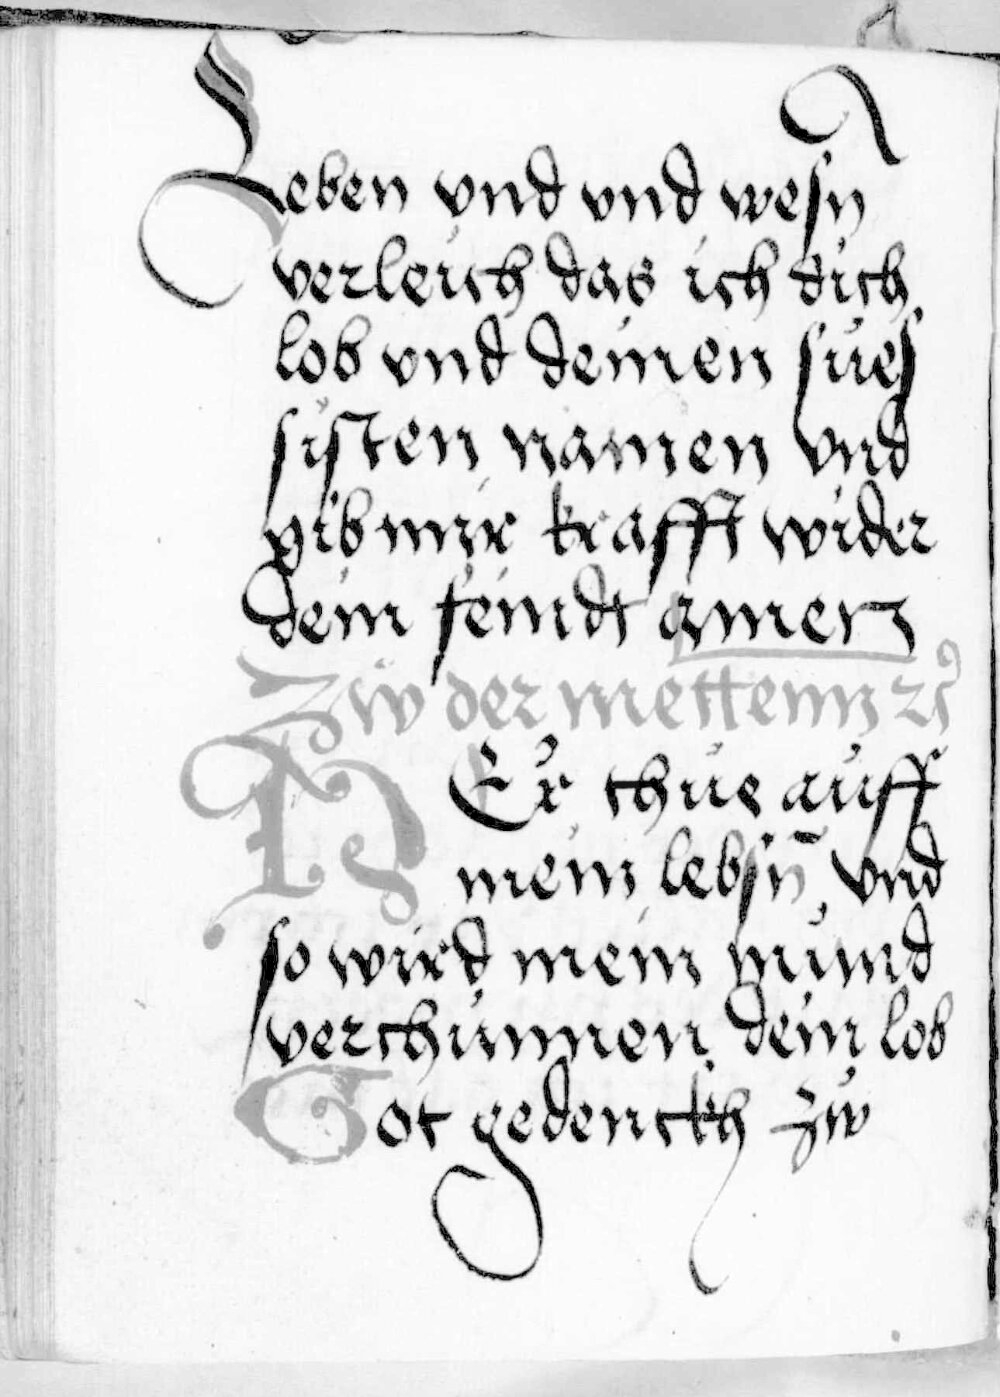 Leben vnd vnd wesn
verleich das ich dich
lob vnd deinen sues
sisten namen vnd
gib mir krafft wider
dein feindt amen
Zw der mettenn
HEr thue auff
mein lebsn̄ vnd
so wird mein mund
verchunnen dein lob
Got gedenckh zw